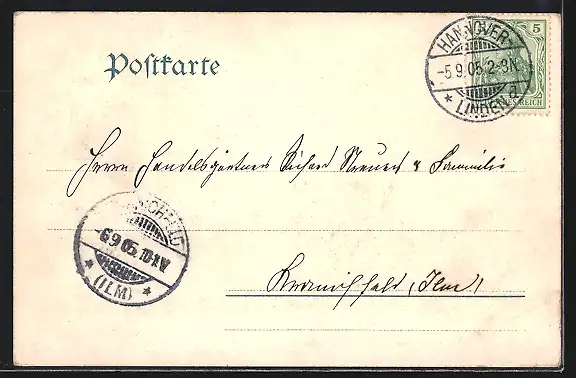 Postkarte
HANNOVER-
-5.9.05.2-3N.
* LINDEN d.
5
REICH
Herrn Handelsgärtner Richard & Familie
-6.9.05.10-11V.
* (ILM) *
Kranichfeld, (Ilm)